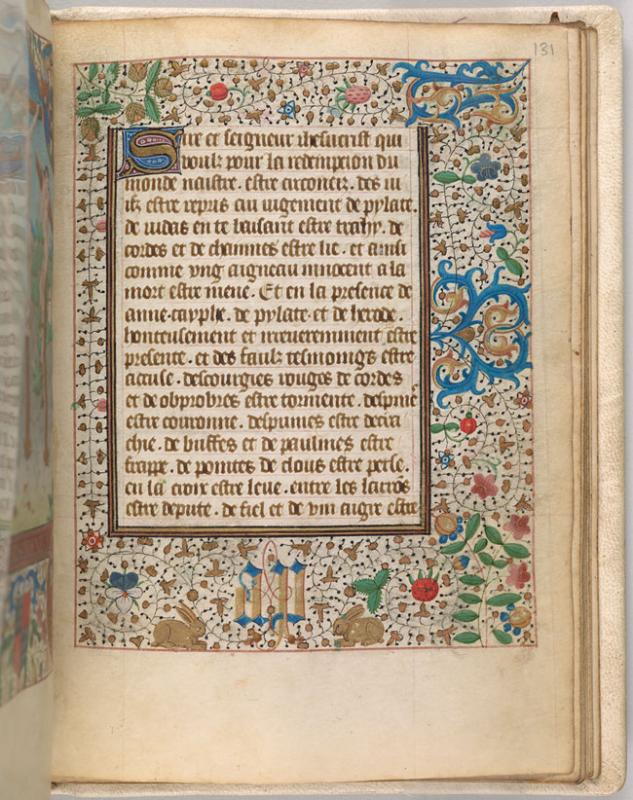 131
Sire et seigneur ihesucrist qui
voulz pour la redempcion du
monde naistre . estre circonciz . des iu
ifz estre repris au iugement de pylate .
de iudas en te baisant estre trahy . de
cordes et de chainnes estre lie . et ainsi
comme vng aigneau innocent a la
mort estre mene . Et en la presence de
anne . cayphe . de pylate et de herode .
honteusement et irreueremment estre
presente . et des faulz tesmoings estre
accuse . descourgies rouges de cordes
et de obprobres estre tormente . despine
estre couronne . despumes estre decra
chie . de buffes et de paulmes estre
frappe . de pointes de clous estre perse .
en la croix estre leue . entre les larros
estre depute . de fiel et de vin aigre estre